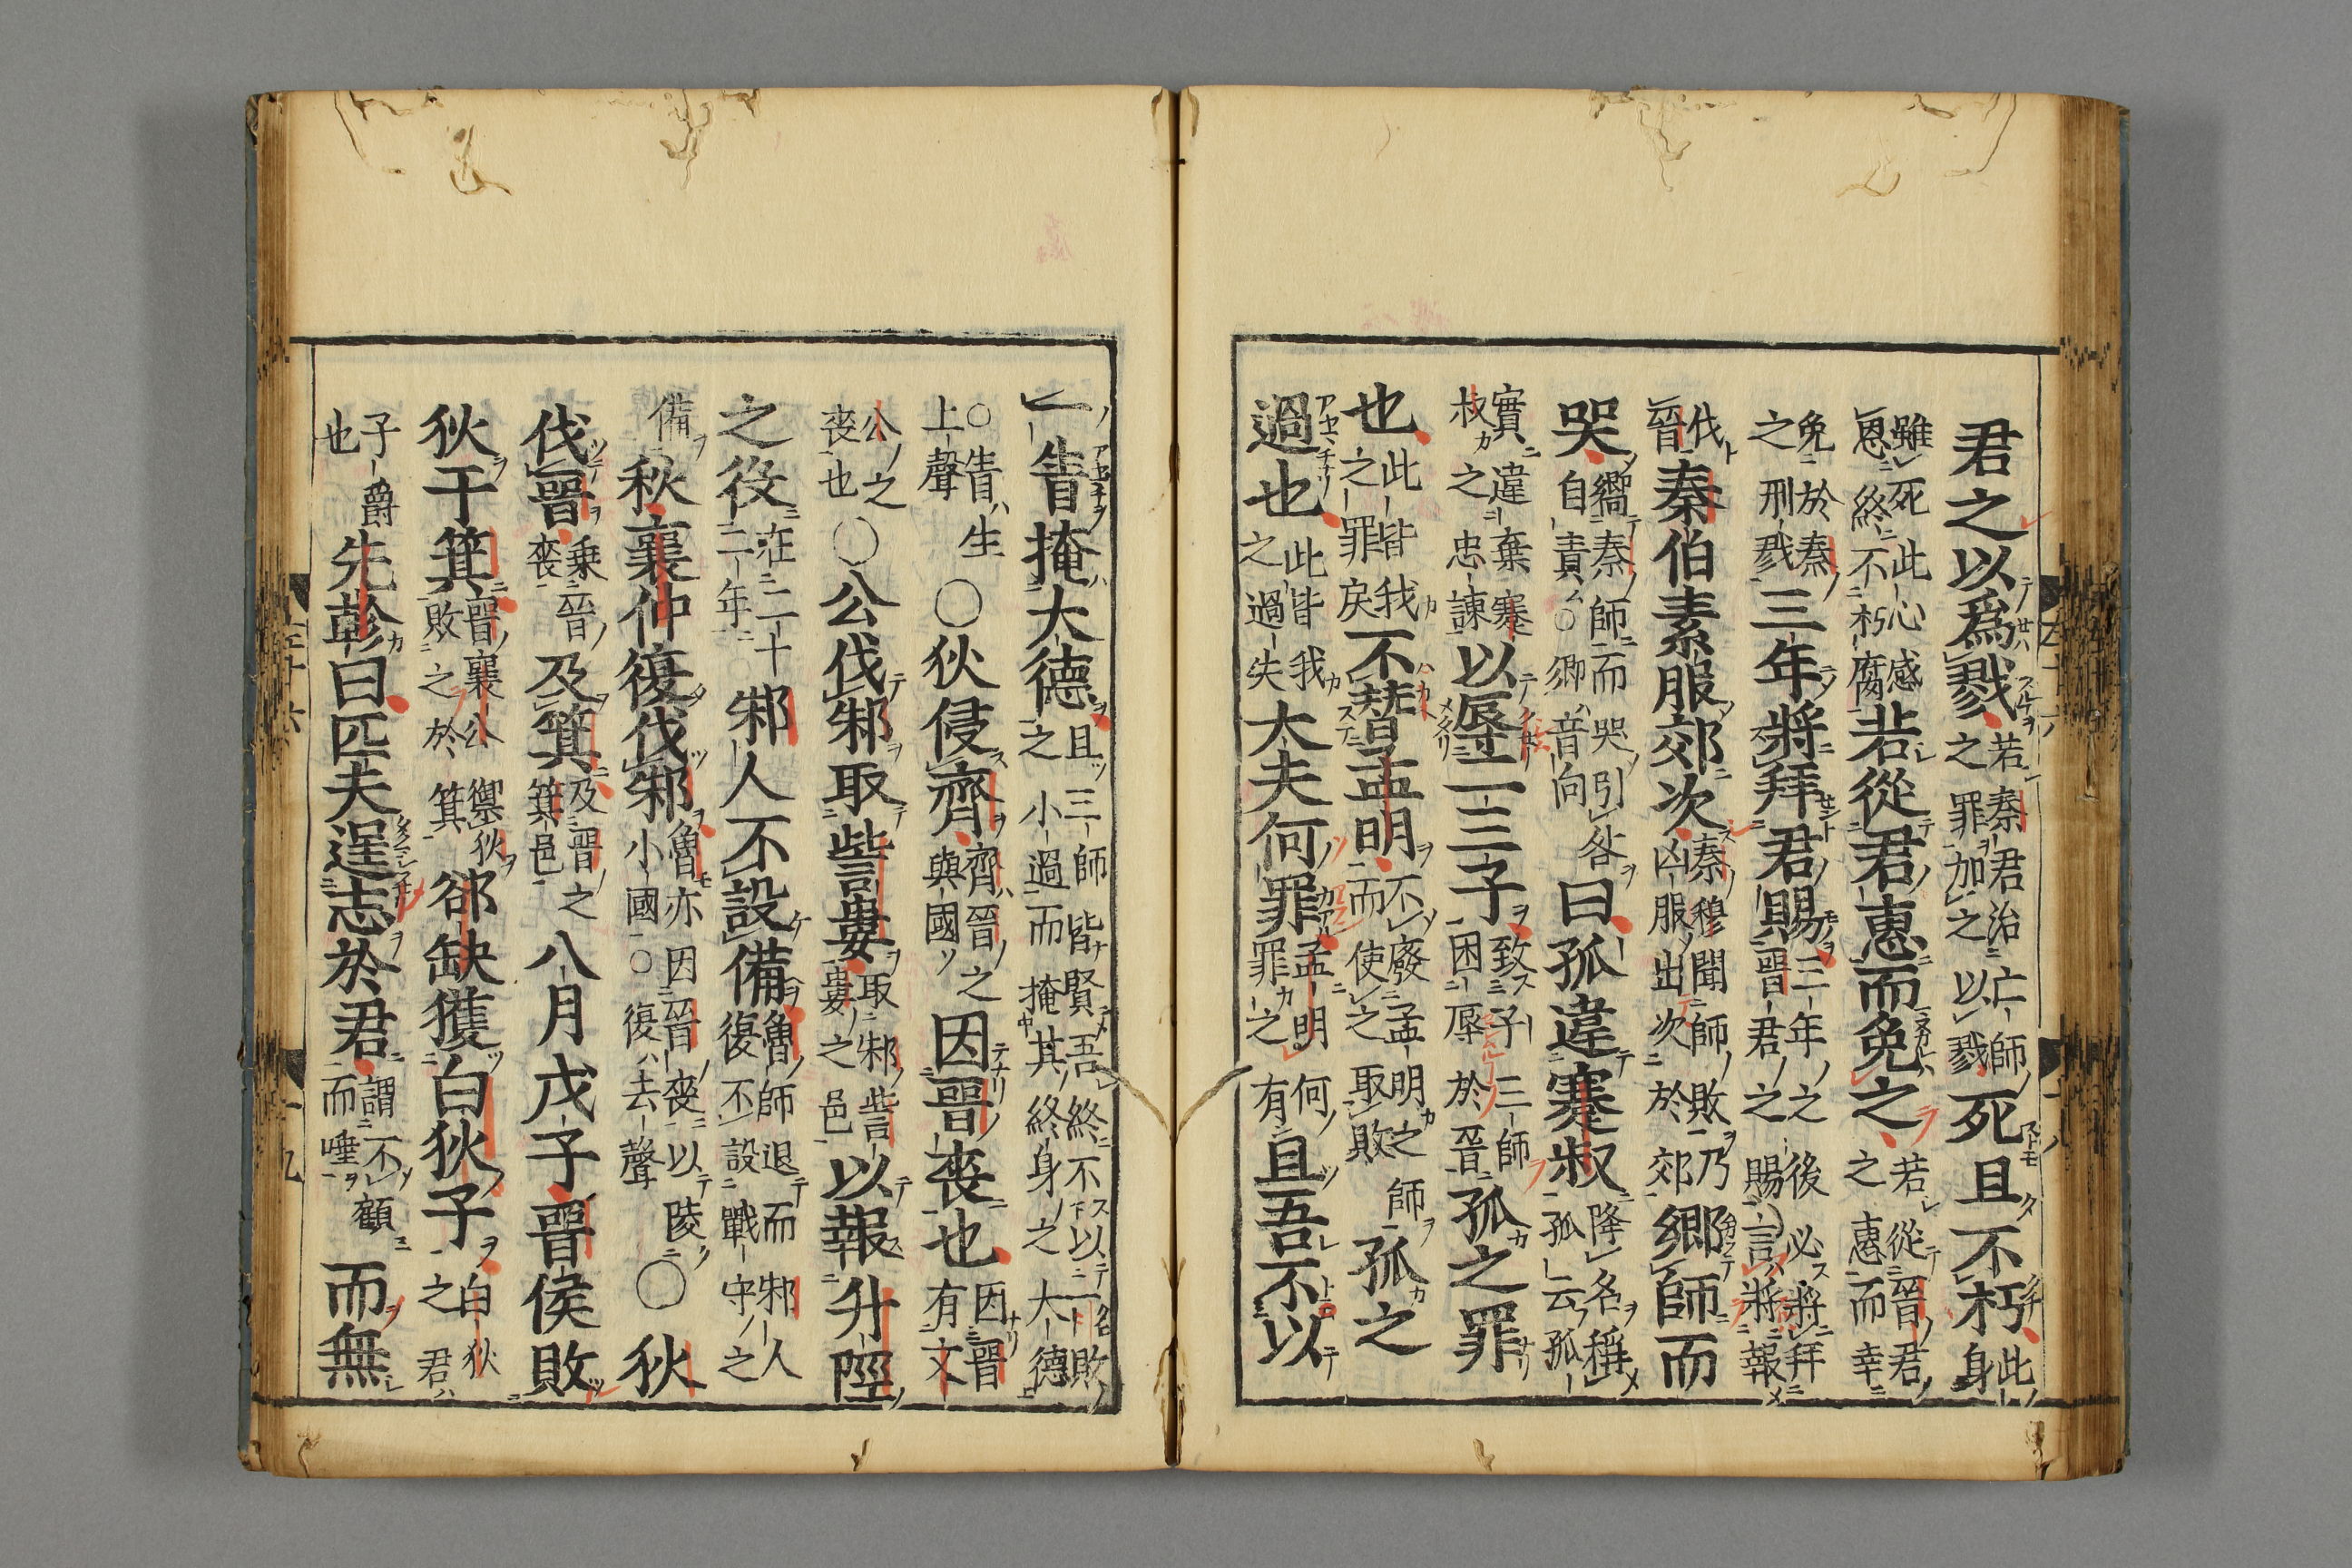 君之以爲戮若秦君治亡師之罪加之以戮死且不朽此身
雖死此心感恩終不朽腐若從君惠而免之若從晉君之惠而幸
免於秦之刑戮三年將拜君賜三年之後必將拜晉君之賜言將報
伐晉秦伯素服郊次秦穆聞師敗乃凶服出次於郊鄉師而
哭嚮秦師而哭引咎自責○鄉音向曰孤違蹇叔降名稱孤云孤
實違棄蹇叔之忠諫以辱二三子致三子三師困辱於晉孤之罪
也此皆我之罪戾不替孟明不廢孟明之師而使之取敗孤之
過也此皆我之過失大夫何罪孟明何罪之有且吾不以
一眚掩大德且三師皆賢吾終不以一敗之小過而掩其終身之大德
○眚生上聲○狄侵齊齊晉之與國因晉喪也因晉有文
公之喪也○公伐邾取訾婁取邾訾婁之邑以報升陘
之役在二十二年邾人不設備魯師退而邾人復不設戰守之
備秋襄仲復伐邾魯亦因晉喪以陵小國○復去聲○狄
伐晉乗晉喪及箕及晉之箕邑八月戊子晉侯敗
狄于箕晉襄公禦狄敗之於箕郤缺獲白狄子白狄之君
子爵也先軫曰匹夫逞志於君謂不顧而唾而無